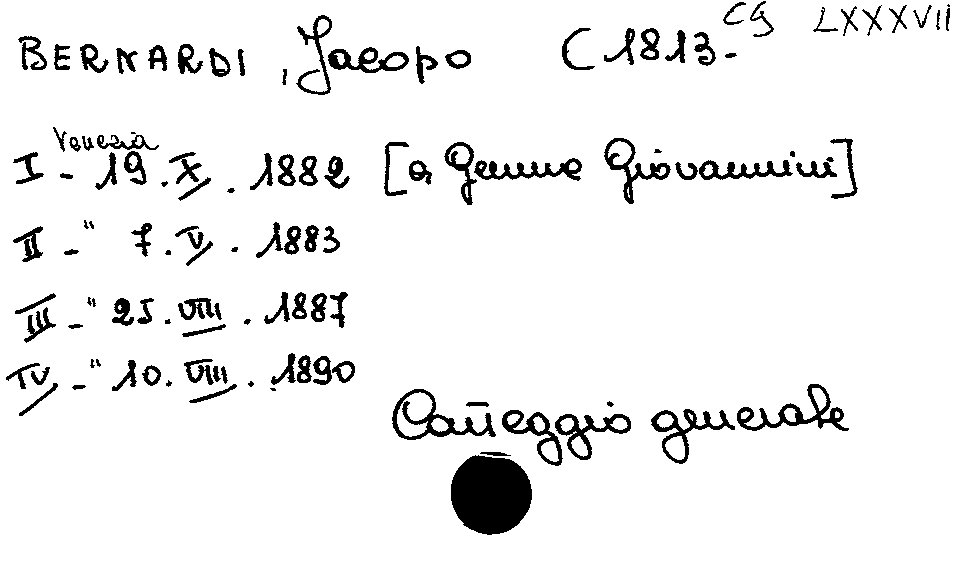 CG LXXXVII
BERNARDI, Jacopo (1813-
Venezia
I - 19.X.1882 [a Gemma Giovannini]
II - " 7.V.1883
III - " 25.VIII.1887
IV - " 10.VIII.1890
Carteggio generale